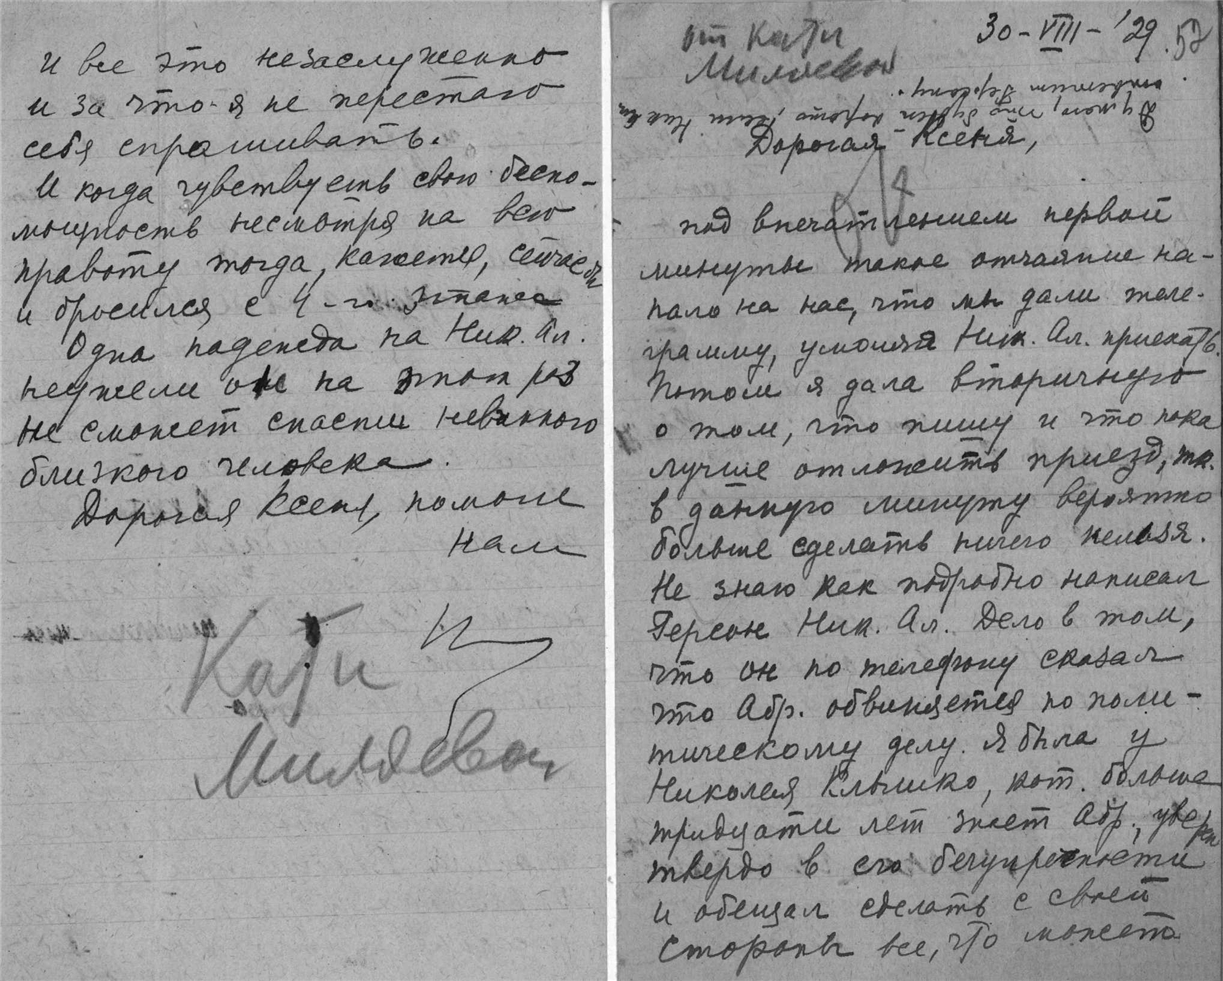 и все это незаслуженно
и за что - я не перестаю
себя спрашивать.
И когда чувствуешь свою беспо-
мощность несмотря на всю
правоту тогда, кажется, сейчас бы
и бросился с 4-го этажа
Одна надежда на Ник. Ал.
неужели он на этот раз
не сможет спасти невинного
близкого человека.
Дорогая Ксеня, помоги
нам
Кати
Миляевой
от Кати
Миляевой
30-VIII-'29. 57
Думаю, что будет хорошо, если Ник
ответит Герсону.
Дорогая Ксеня,
под впечатлением первой
минуты такое отчаяние на-
пало на нас, что мы дали теле-
грамму, умоляя Ник. Ал. приехать.
Потом я дала вторичную
о том, что пишу и что пока
лучше отложить приезд, т.к.
в данную минуту вероятно
больше сделать ничего нельзя.
Не знаю как подробно написал
Герсон Ник. Ал. Дело в том,
что он по телефону сказал
что Абр. обвиняется по поли-
тическому делу. Я была у
Николая Клышко, кот. больше
тридцати лет знает Абр., уверен
твердо в его безупречности
и обещал сделать с своей
стороны все, что может